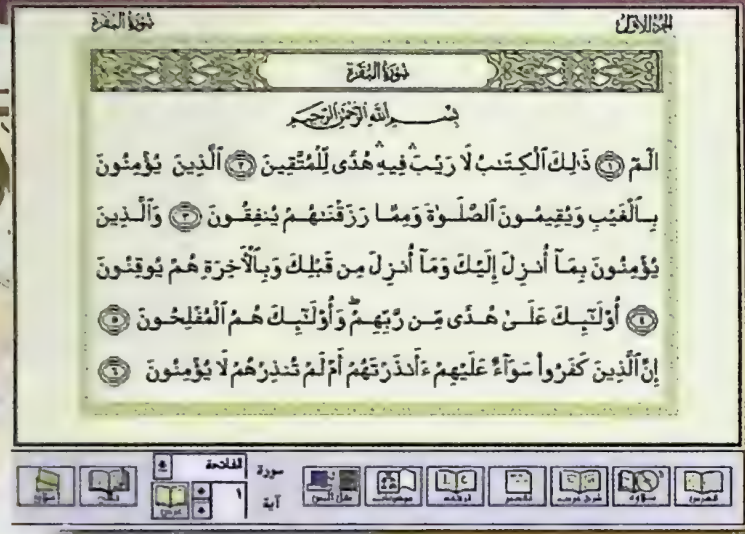 الجزء الأول سورة البقرة
سورة البقرة
بِسْمِ ٱللَّهِ ٱلرَّحْمَٰنِ ٱلرَّحِيمِ
الٓمٓ ۝١ ذَٰلِكَ ٱلْكِتَٰبُ لَا رَيْبَ ۛ فِيهِ ۛ هُدًى لِّلْمُتَّقِينَ ۝٢ ٱلَّذِينَ يُؤْمِنُونَ
بِٱلْغَيْبِ وَيُقِيمُونَ ٱلصَّلَوٰةَ وَمِمَّا رَزَقْنَٰهُمْ يُنفِقُونَ ۝٣ وَٱلَّذِينَ
يُؤْمِنُونَ بِمَآ أُنزِلَ إِلَيْكَ وَمَآ أُنزِلَ مِن قَبْلِكَ وَبِٱلْأَخِرَةِ هُمْ يُوقِنُونَ
۝٤ أُوْلَٰٓئِكَ عَلَىٰ هُدًى مِّن رَّبِّهِمْ ۖ وَأُوْلَٰٓئِكَ هُمُ ٱلْمُفْلِحُونَ ۝٥
إِنَّ ٱلَّذِينَ كَفَرُواْ سَوَآءٌ عَلَيْهِمْ ءَأَنذَرْتَهُمْ أَمْ لَمْ تُنذِرْهُمْ لَا يُؤْمِنُونَ ۝٦
سورة الفاتحة
آية ١
الفهرس